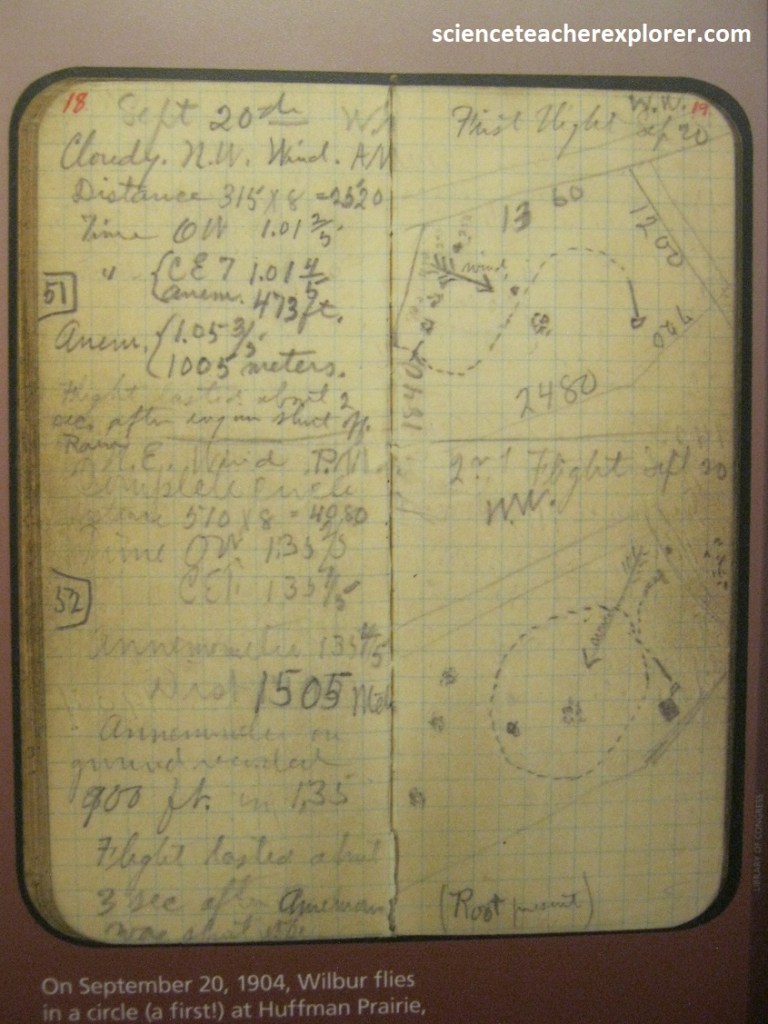 scienceteacherexplorer.com
18
Sept 20th
Cloudy. N.W. Wind. AM
Distance 315 x 8 = 2520
Time OW 1.01 2/5
" { C E T 1.01 4/5
anem. 473 ft.
51
Anem. { 1.05 3/5
1005 meters.
Flight lasted about 2
sec. after engine shut off.
N.E. Wind P.M.
Complete circle
510 x 8 = 4080
Time OW. 135
CET. 135 4/5
52
135 4/5
Dist 1505
Annemometer on
ground recorded
900 ft. in 1,35
Flight lasted about
3 sec after
was shut
W.W. 19
First flight Sep 20
1360
1200
wind
720
1840
2480
2nd Flight Sept 20
W.W.
wind
(Root present)
LIBRARY OF CONGRESS
On September 20, 1904, Wilbur flies
in a circle (a first!) at Huffman Prairie,